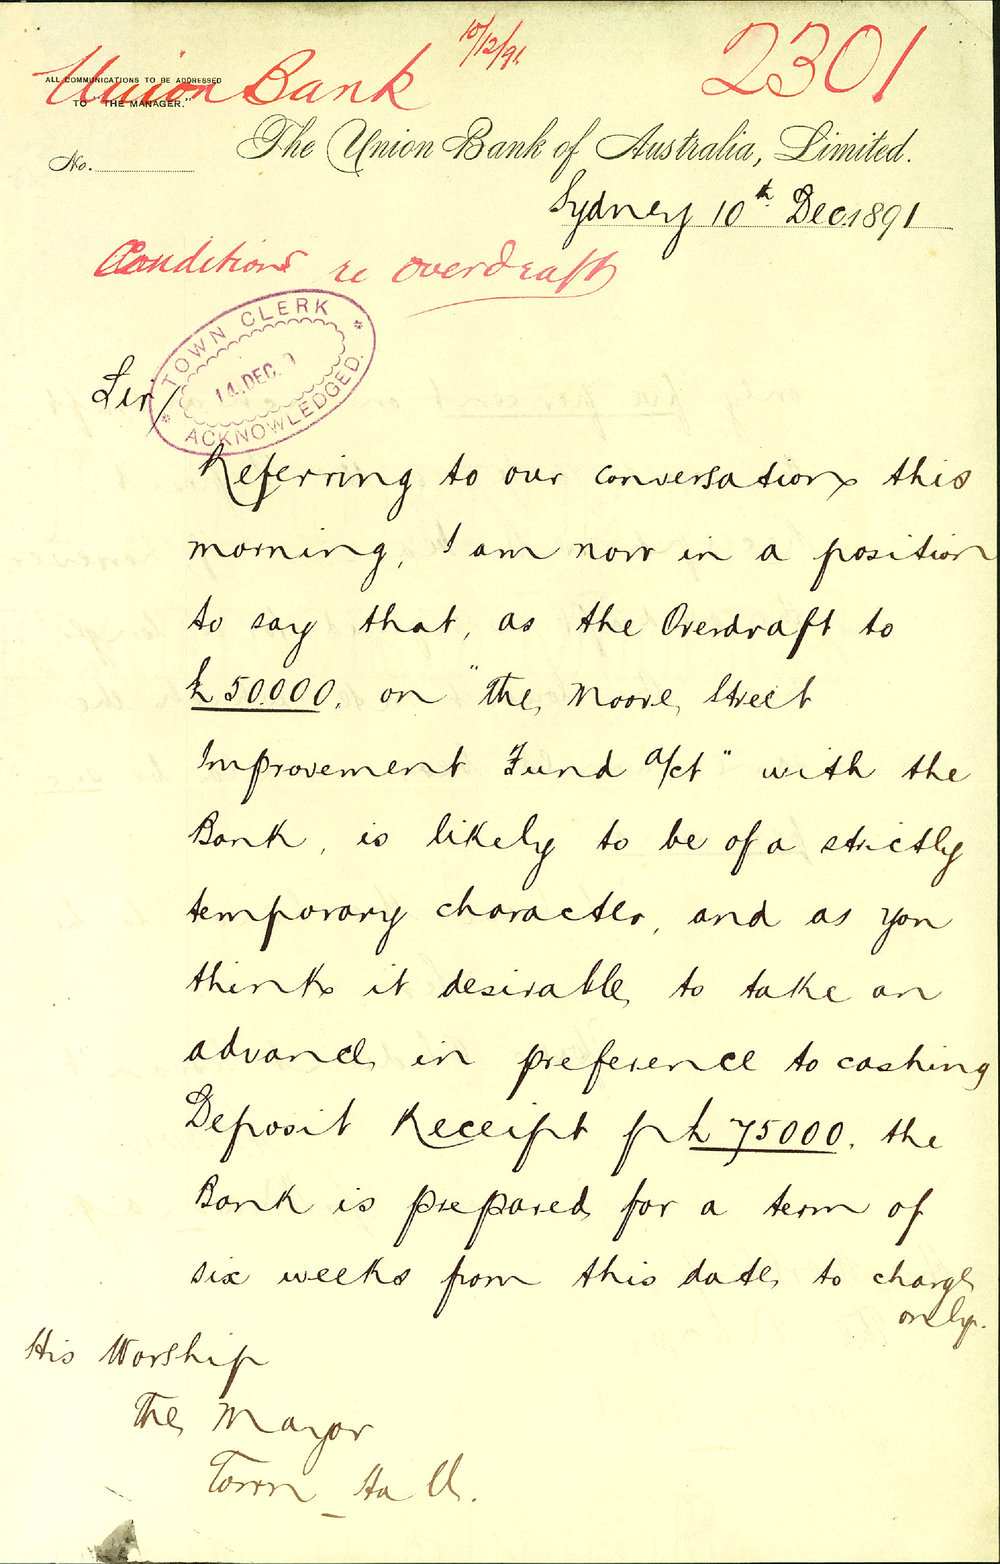 10/12/91
2301
Union Bank
ALL COMMUNICATIONS TO BE ADDRESSED
TO "THE MANAGER."
The Union Bank of Australia, Limited.
No.
Sydney 10th Dec. 1891
Conditions re overdraft
TOWN CLERK
14. DEC. 9
ACKNOWLEDGED.
Sir/
Referring to our conversation this
morning, I am now in a position
to say that, as the Overdraft to
£50.000. on "The Moore Street
Improvement Fund a/ct" with the
Bank, is likely to be of a strictly
temporary character, and as you
think it desirable to take an
advance in preference to cashing
Deposit Receipt for £75000. the
Bank is prepared for a term of
six weeks from this date to charge
only.
His Worship
The Mayor
Town Hall.